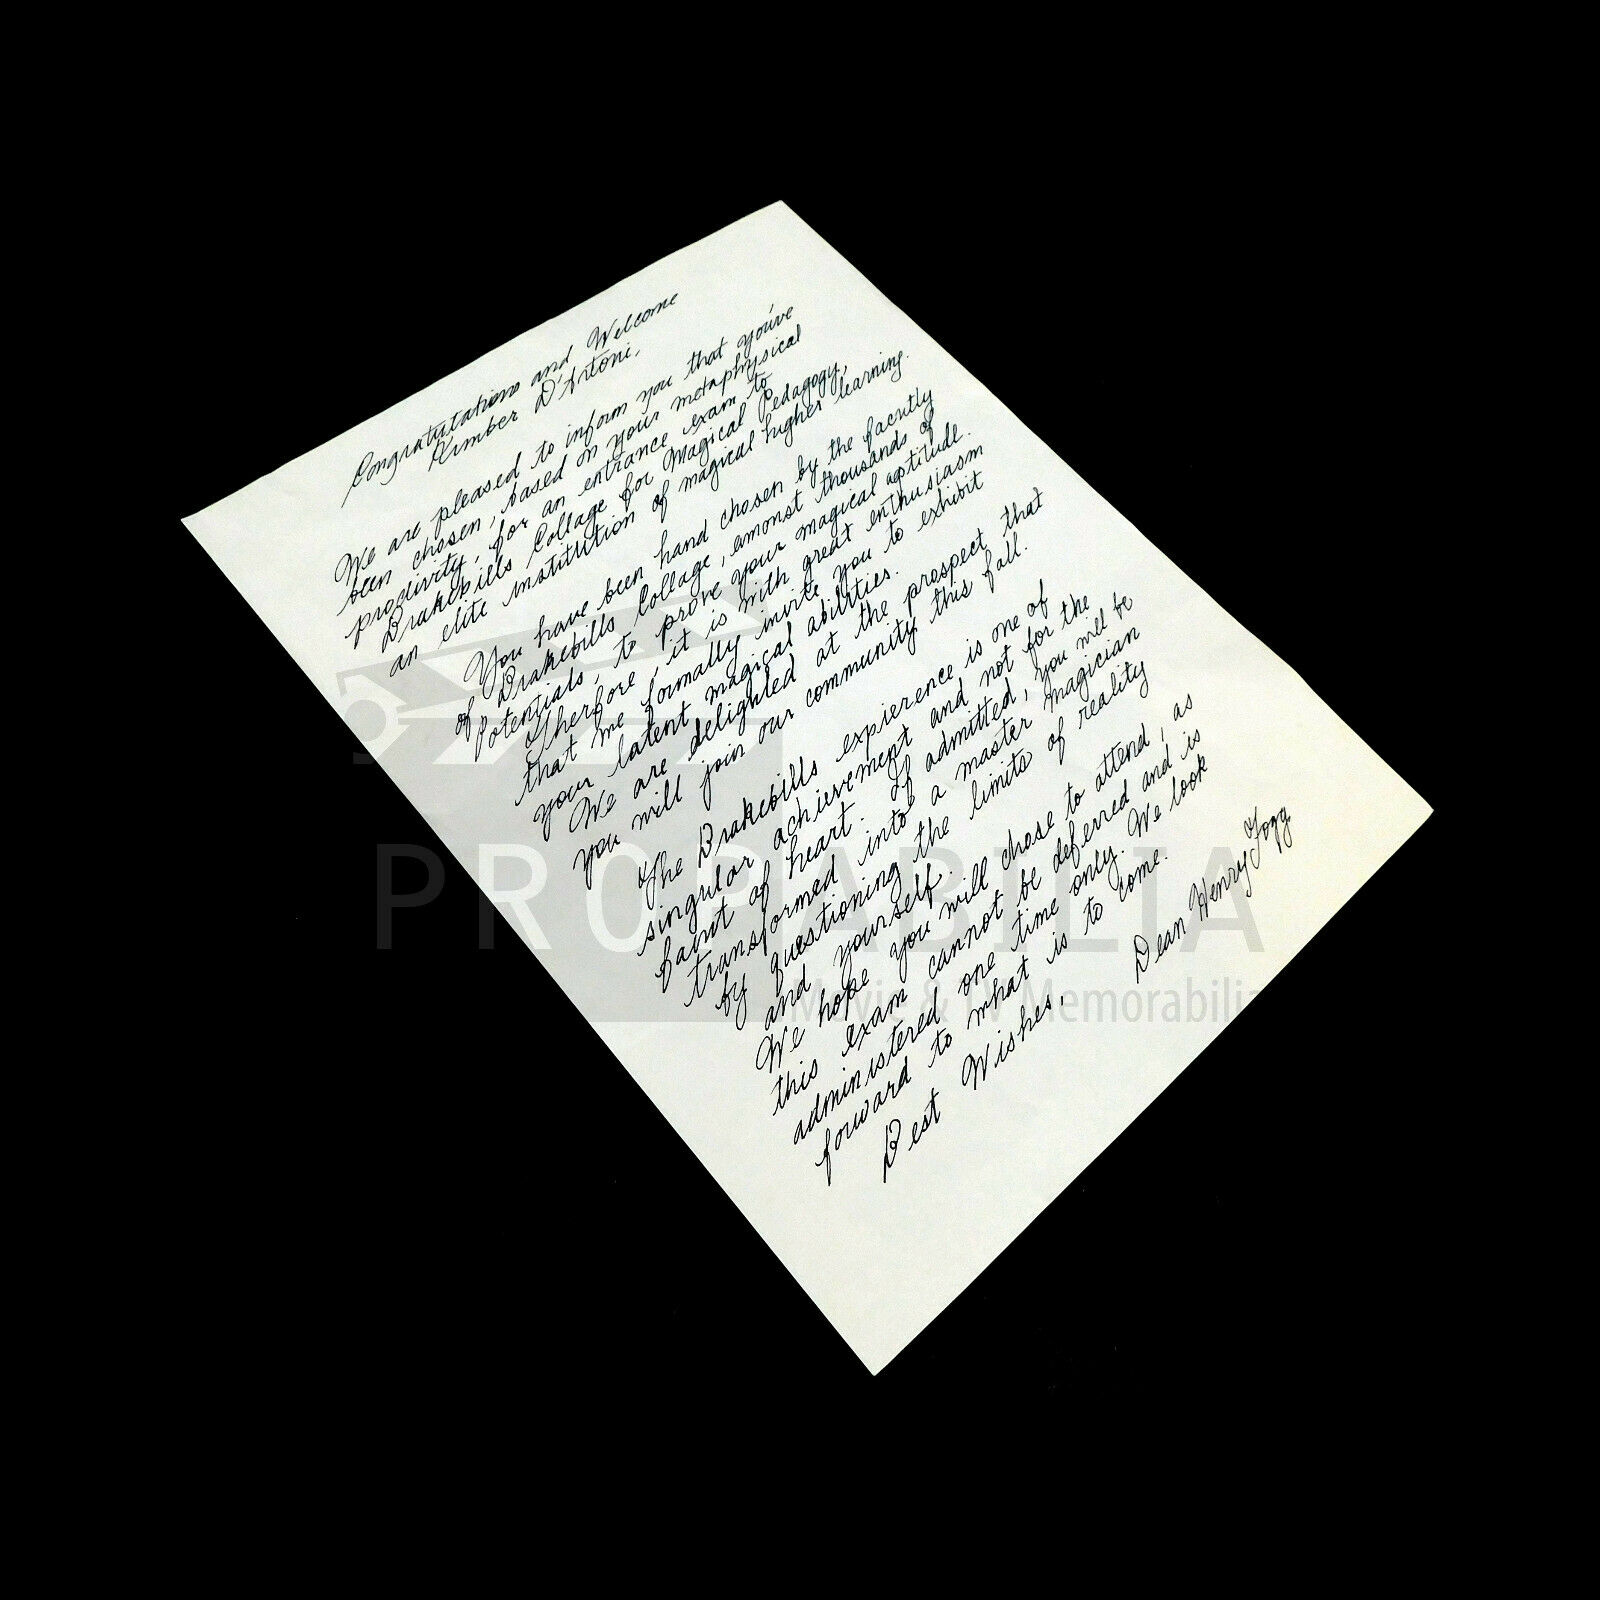 Congratulations and Welcome
Kimber D'Antoni,
We are pleased to inform you that you've
been chosen, based on your metaphysical
proclivity, for an entrance exam to
Brakebills Collage for Magical Pedagogy,
an elite institution of magical higher learning.
You have been hand chosen by the facutly
of Brakebills Collage, amonst thousands of
Potentials, to prove your magical aptitude.
Therefore, it is with great enthusiasm
that we formally invite you to exhibit
your latent magical abilities.
We are delighted at the prospect that
you will join our community this fall.
The Brakebills expierence is one of
singular achievement and not for the
faint of heart. If admitted, you will be
transformed into a master magician
by questioning the limits of reality
and yourself.
We hope you will chose to attend, as
this exam cannot be deferred and is
administered one time only. We look
forward to what is to come.
Best Wishes, Dean Henry Fogg
PROPABILIA
Movie & TV Memorabilia